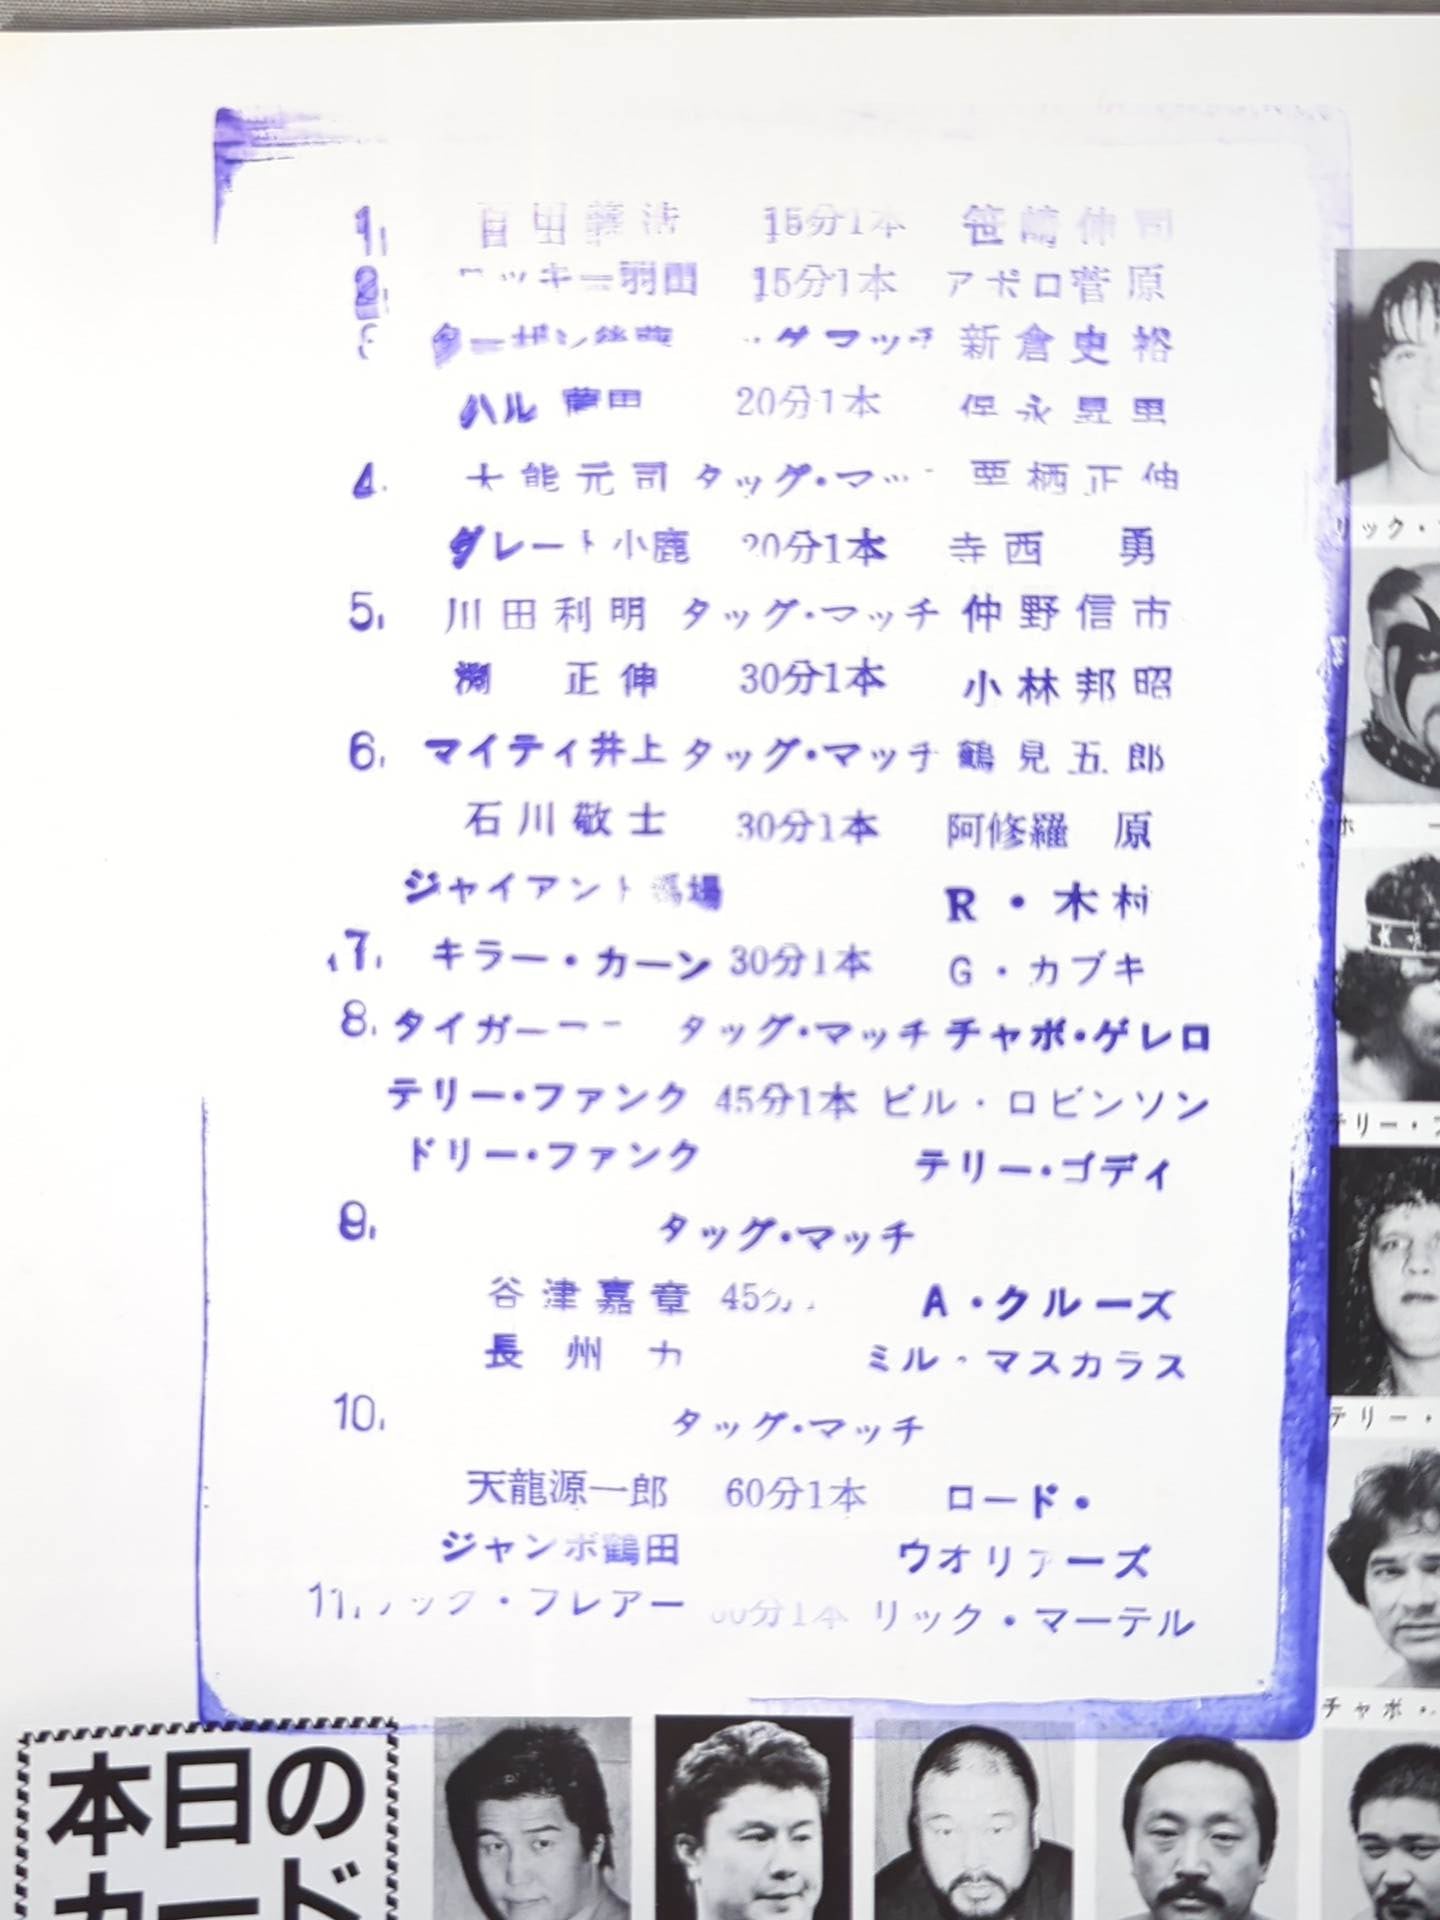 1. 百田義浩 15分1本 笹崎伸司
2. ッキー羽田 15分1本 アポロ菅原
ターザン後藤 グマッチ 新倉史裕
ハル薗田 20分1本 保永昇男
4. 大熊元司 タッグ・マッ 栗栖正伸
グレート小鹿 20分1本 寺西 勇
5. 川田利明 タッグ・マッチ 仲野信市
渕 正伸 30分1本 小林邦昭
6. マイティ井上 タッグ・マッチ 鶴見五郎
石川敬士 30分1本 阿修羅 原
ジャイアント馬場 R・木村
7. キラー・カーン 30分1本 G・カブキ
8. タイガー タッグ・マッチ チャボ・ゲレロ
テリー・ファンク 45分1本 ビル・ロビンソン
ドリー・ファンク テリー・ゴディ
9. タッグ・マッチ
谷津嘉章 45分 A・クルーズ
長州 力 ミル・マスカラス
10. タッグ・マッチ
天龍源一郎 60分1本 ロード・
ジャンボ鶴田 ウオリアーズ
11. リック・フレアー 60分1本 リック・マーテル
リック・
ホ ー
テリー・フ
テリー・
チャボ・
本日の
カード